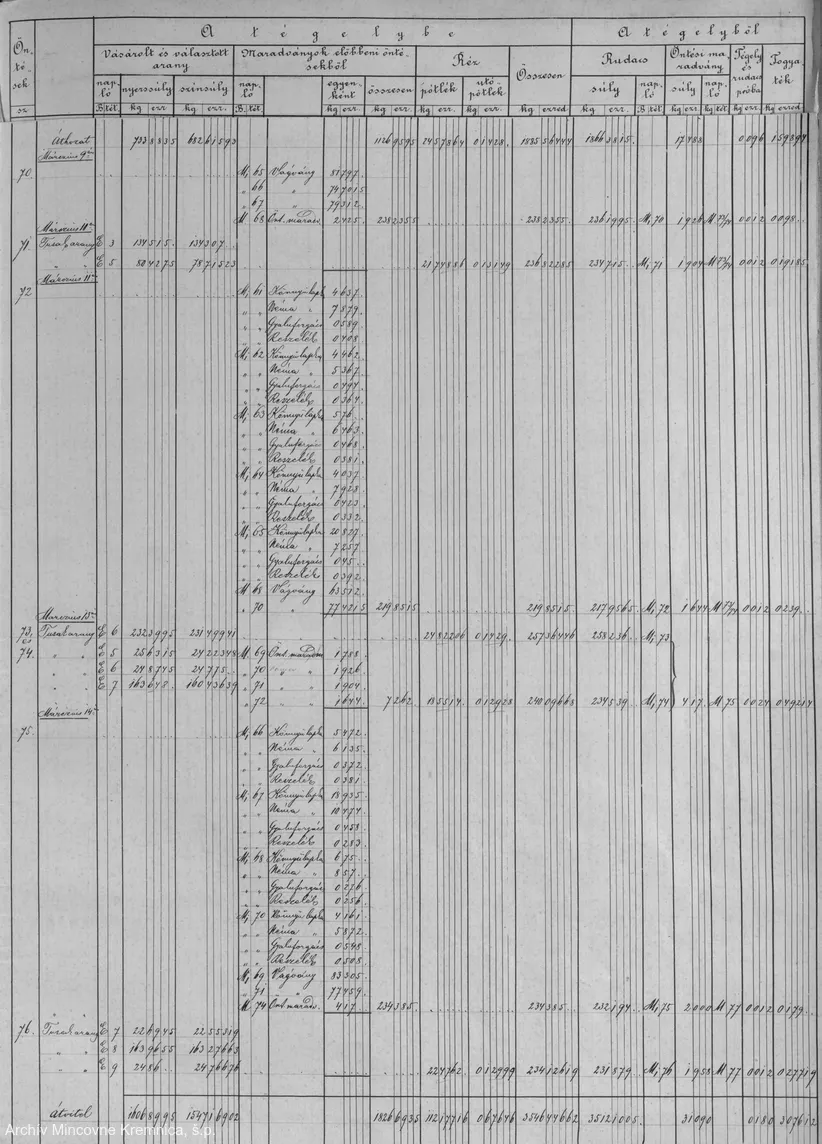 A tégelybe A tégelyből
Öntések Vásárolt és választott arany Maradványok előbbeni öntésekből Réz Összesen Rudacs Öntési maradvány Tégely és rudacs próba Fogyaték
napló nyerssúly színsúly napló egyenként összesen pótlék utópótlék súly napló súly napló
sz. B. tét. kg ezr. kg ezr. B. tét. kg ezr. kg ezr. kg ezr. kg ezr. kg ezred. kg ezr. B. tét. kg ezr. kg tét. kg ezr. kg ezred.
Áthozat 7338835 68261593 11269595 2457864 01428 18556444 18663815 17488 0096 159897
Márczius 9én
70. M, 65 Vágvány 81797
„ 66 „ 747015
„ 67 „ 79312
M 68 Önt. marads. 2425 2382355 2382355 2361995 M, 70 1926 0012 0098
Márczius 11én
71. Tiszta arany E 3 134515 134307
E 5 804275 7871523 2174886 013149 23682285 234715 M, 71 1904 0012 019185
Márczius 11én
72 M, 61 Könnyű lapka 4637
„ „ Néma „ 7879
„ „ Gyaluforgács 0589
„ „ Reszelék 0408
M, 62 Könnyű lapka 4462
„ „ Néma „ 5367
„ „ Gyaluforgács 0494
„ „ Reszelék 0364
M, 63 Könnyű lapka 576
„ „ Néma „ 6463
„ „ Gyaluforgács 0468
„ „ Reszelék 0381
M, 64 Könnyű lapka 4037
„ „ Néma „ 7928
„ „ Gyaluforgács 0423
„ „ Reszelék 0332
M, 65 Könnyű lapka 20817
„ „ Néma „ 7257
„ „ Gyaluforgács 045
„ „ Reszelék 0392
M 68 Vágvány 63512
„ 70 „ 774215 2198515 2198515 2179565 M, 72 1644 0012 0239
Márczius 13án
73. és Tiszta arany E 6 2323995 23149941 2482206 01429 25736446 258236 M, 73
74. „ „ E 5 256315 2422348 M 69 Önt. maradv. 1788
„ „ E 6 248745 24775 „ 70 „ „ 1926
„ „ E 7 163648 16043639 „ 71 „ 1904
„ 72 „ 1644 7262 185514 012928 24009668 234539 M, 74 417 M 75 0024 049214
Márczius 14én
75. M, 66 Könnyű lapka 5472
„ „ Néma „ 6135
„ „ Gyaluforgács 0372
„ „ Reszelék 0381
M, 67 Könnyű lapka 18935
„ „ Néma „ 10474
„ „ Gyaluforgács 0458
„ „ Reszelék 0283
M, 68 Könnyű lapka 675
„ „ Néma „ 857
„ „ Gyaluforgács 0276
„ „ Reszelék 0256
M, 70 Könnyű lapka 4161
„ „ Néma „ 5872
„ „ Gyaluforgács 0548
„ „ Reszelék 0508
M, 69 Vágvány 83305
„ 71 „ 77459
M 74 Önt. marads. 417 234385 234385 232194 M, 75 2000 M 77 0012 0179
76. Tiszta arany E 7 226945 2255319
„ „ E 8 1639655 16327663
„ „ E 9 2486 2476676 224762 012999 23412619 231879 M, 76 1958 M 77 0012 027719
Átvitel 16068995 154716902 18266935 11217716 067646 354644662 35121005 31090 0180 307612
Archív Mincovne Kremnica, š.p.